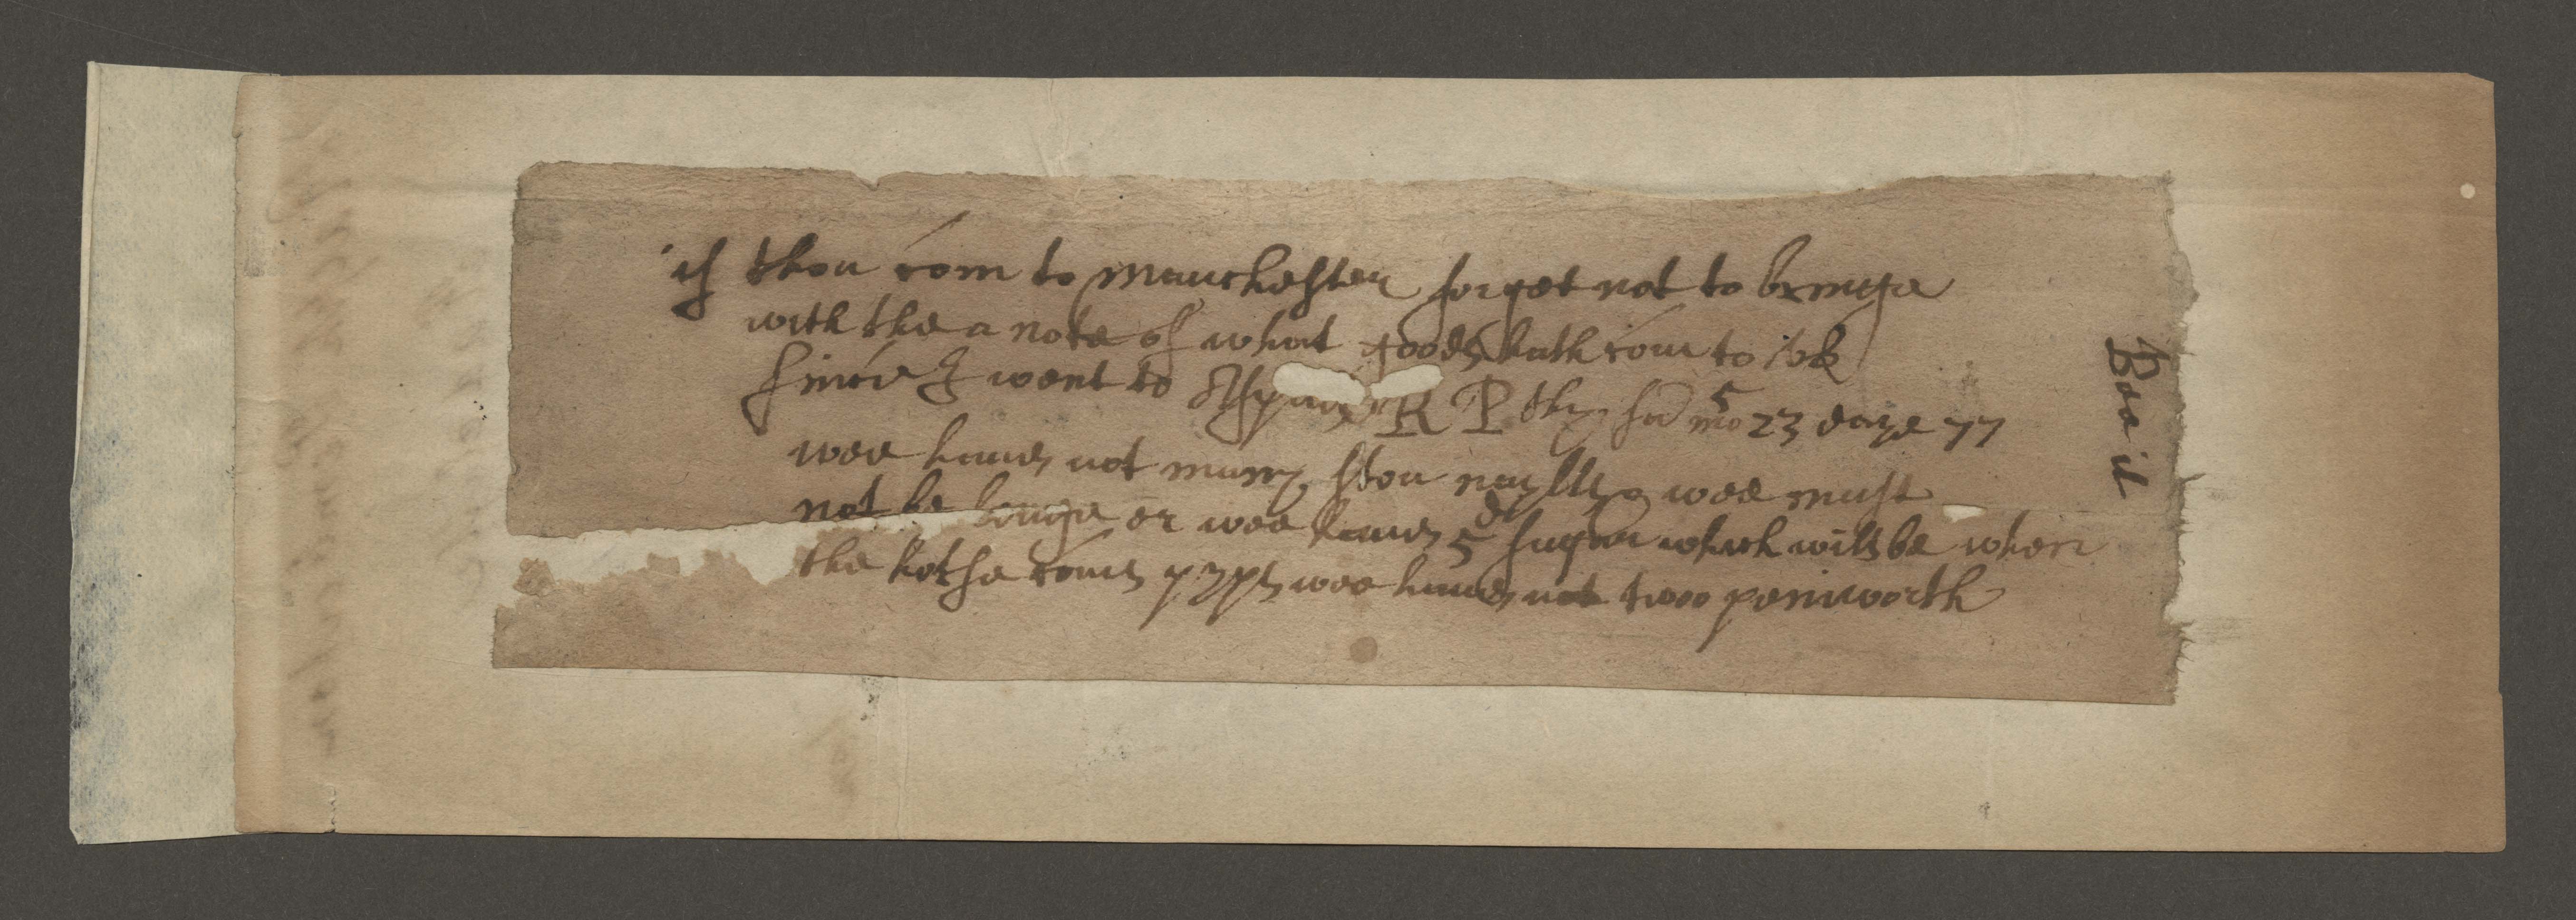 if thou com to manchester forget not to bringe
with the a note of what goods hath com to
since I went to R P thy fa 5 mo 23 daye 77
wee haues not many ston naylls wee must
not be longe or wee haues 5 d suger which wills be when
the kothe coms pyps wee haues not twoo peniworth